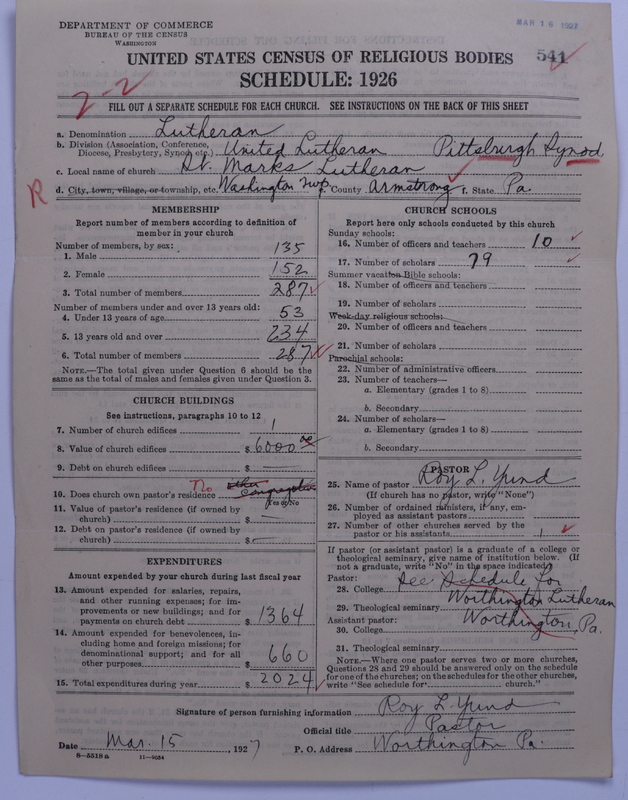 DEPARTMENT OF COMMERCE
BUREAU OF THE CENSUS
WASHINGTON
MAR 16 1927
UNITED STATES CENSUS OF RELIGIOUS BODIES
541
SCHEDULE: 1926
2-2
FILL OUT A SEPARATE SCHEDULE FOR EACH CHURCH. SEE INSTRUCTIONS ON THE BACK OF THIS SHEET
a. Denomination Lutheran
b. Division (Association, Conference, Diocese, Presbytery, Synod, etc.) United Lutheran Pittsburgh Synod
c. Local name of church St. Marks Lutheran
R
d. City, town, village, or township, etc. Washington Twp. e. County Armstrong f. State Pa.
MEMBERSHIP
Report number of members according to definition of
member in your church
Number of members, by sex:
1. Male 135
2. Female 152
3. Total number of members 287
Number of members under and over 13 years old:
4. Under 13 years of age 53
5. 13 years old and over 234
6. Total number of members 287
NOTE.—The total given under Question 6 should be the
same as the total of males and females given under Question 3.
CHURCH BUILDINGS
See instructions, paragraphs 10 to 12
7. Number of church edifices 1
8. Value of church edifices $ 6000 00
9. Debt on church edifices $ —
10. Does church own pastor's residence No other Congregation
Yes or No
11. Value of pastor's residence (if owned by
church) $ —
12. Debt on pastor's residence (if owned by
church) $ —
EXPENDITURES
Amount expended by your church during last fiscal year
13. Amount expended for salaries, repairs,
and other running expenses; for im-
provements or new buildings; and for
payments on church debt $ 1364
14. Amount expended for benevolences, in-
cluding home and foreign missions; for
denominational support; and for all
other purposes $ 660
15. Total expenditures during year $ 2024
CHURCH SCHOOLS
Report here only schools conducted by this church
Sunday schools:
16. Number of officers and teachers 10
17. Number of scholars 79
Summer vacation Bible schools:
18. Number of officers and teachers
19. Number of scholars
Week-day religious schools:
20. Number of officers and teachers
21. Number of scholars
Parochial schools:
22. Number of administrative officers
23. Number of teachers—
a. Elementary (grades 1 to 8)
b. Secondary
24. Number of scholars—
a. Elementary (grades 1 to 8)
b. Secondary
PASTOR
25. Name of pastor Roy L. Yund
(If church has no pastor, write "None")
26. Number of ordained ministers, if any, em-
ployed as assistant pastors
27. Number of other churches served by the
pastor or his assistants 1
If pastor (or assistant pastor) is a graduate of a college or
theological seminary, give name of institution below. (If
not a graduate, write "No" in the space indicated)
Pastor:
28. College See Schedule for
29. Theological seminary Worthington Lutheran
Assistant pastor:
30. College Worthington, Pa.
31. Theological seminary
NOTE.—Where one pastor serves two or more churches,
Questions 28 and 29 should be answered only on the schedule
for one of the churches; on the schedules for the other churches,
write "See schedule for church."
Signature of person furnishing information Roy L. Yund
Official title Pastor
Date Mar. 15, 1927 P. O. Address Worthington Pa.
8-5519a 11-9554